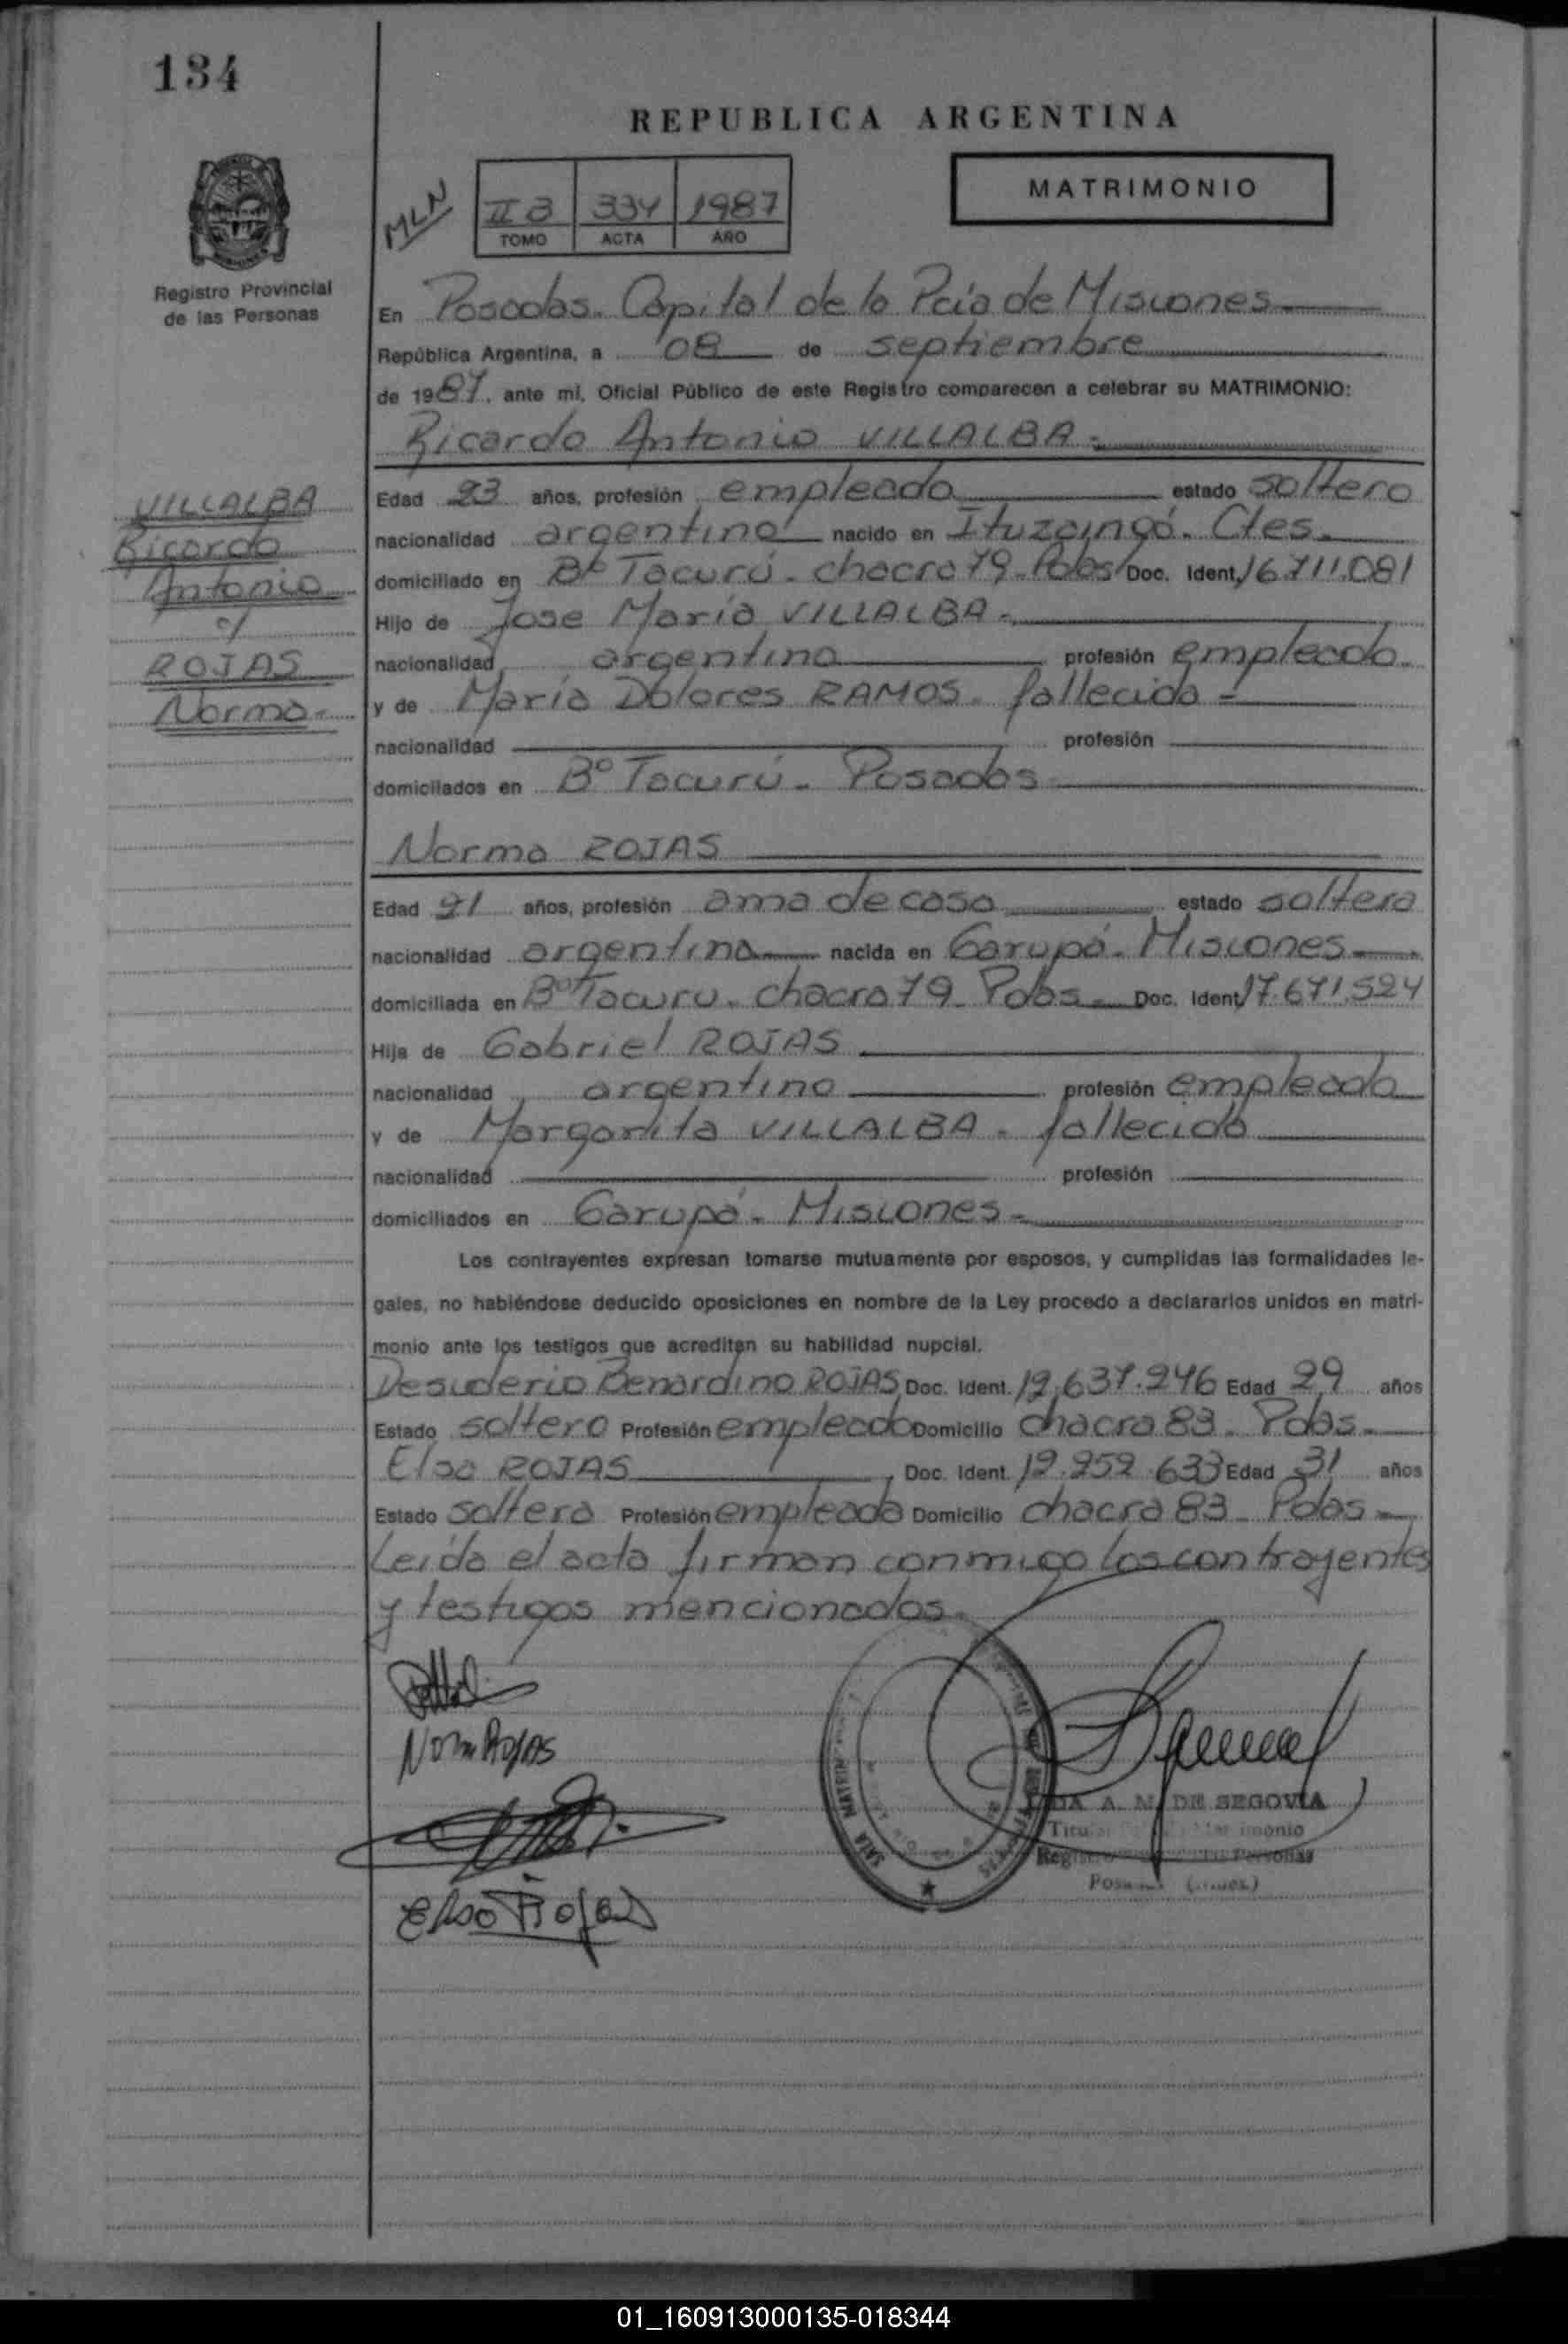 134
REPUBLICA ARGENTINA
MLN
II B 334 1987
TOMO ACTA AÑO
MATRIMONIO
Registro Provincial
de las Personas
En Posadas. Capital de la Pcia de Misiones
República Argentina, a 08 de septiembre
de 1987, ante mí, Oficial Público de este Registro comparecen a celebrar su MATRIMONIO:
Ricardo Antonio VILLALBA.
VILLALBA
Ricardo
Antonio
c/
ROJAS
Norma.
Edad 23 años, profesión empleado estado soltero
nacionalidad argentina nacido en Ituzaingó. Ctes.
domiciliado en Bº Tacurú. chacra 79. Pdas Doc. Ident. 16.711.081
Hijo de Jose María VILLALBA.
nacionalidad argentina profesión empleado.
y de María Dolores RAMOS. fallecida
nacionalidad profesión
domiciliados en Bº Tacurú. Posadas
Norma ROJAS
Edad 21 años, profesión ama de casa estado soltera
nacionalidad argentina nacida en Garupá. Misiones
domiciliada en Bº Tacuru. chacra 79 Pdas. Doc. Ident. 17.671.524
Hija de Gabriel ROJAS
nacionalidad argentino profesión empleado
y de Margarita VILLALBA. fallecida
nacionalidad profesión
domiciliados en Garupá. Misiones.
Los contrayentes expresan tomarse mutuamente por esposos, y cumplidas las formalidades le-
gales, no habiéndose deducido oposiciones en nombre de la Ley procedo a declararlos unidos en matri-
monio ante los testigos que acreditan su habilidad nupcial.
Desiderio Benardino ROJAS, Doc. Ident. 12.637.246 Edad 29 años
Estado soltero Profesión empleado Domicilio chacra 83. Pdas.
Elsa ROJAS, Doc. Ident. 12.952.633 Edad 31 años
Estado soltera Profesión empleada Domicilio chacra 83. Pdas
Leída el acta firman conmigo los contrayentes
y testigos mencionados.
Norma Rojas
A. M. DE SEGOVIA
Elsa Rojas
01_160913000135-018344